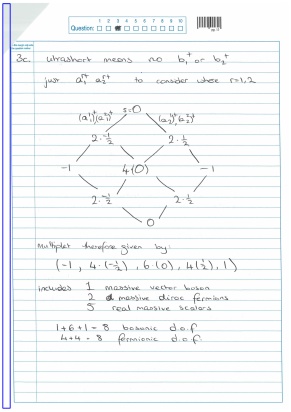 1 2 3 4 5 6 7 8 9 10
Question:
3c. ultrashort means no b₁⁺ or b₂⁺
just a₁^{r+} a₂^{r+} to consider where r=1,2
s=0
(a₁¹)⁺(a₁²)⁺ (a₂¹)⁺(a₂²)⁺
2·-½ 2·½
-1 4(0) -1
2·-½ 2·½
0
Multiplet therefore given by:
(-1, 4·(-½), 6·(0), 4(½), 1)
includes 1 massive vector boson
2 massive dirac fermions
5 real massive scalars
1+6+1 = 8 bosonic d.o.f
4+4 = 8 fermionic d.o.f.